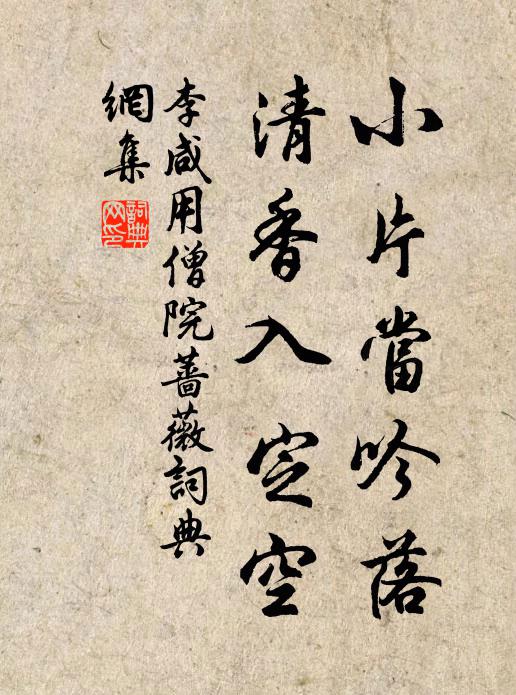 小片當吟落
清香入定空
李咸用僧院薔薇詞典
網集
詞典
网印